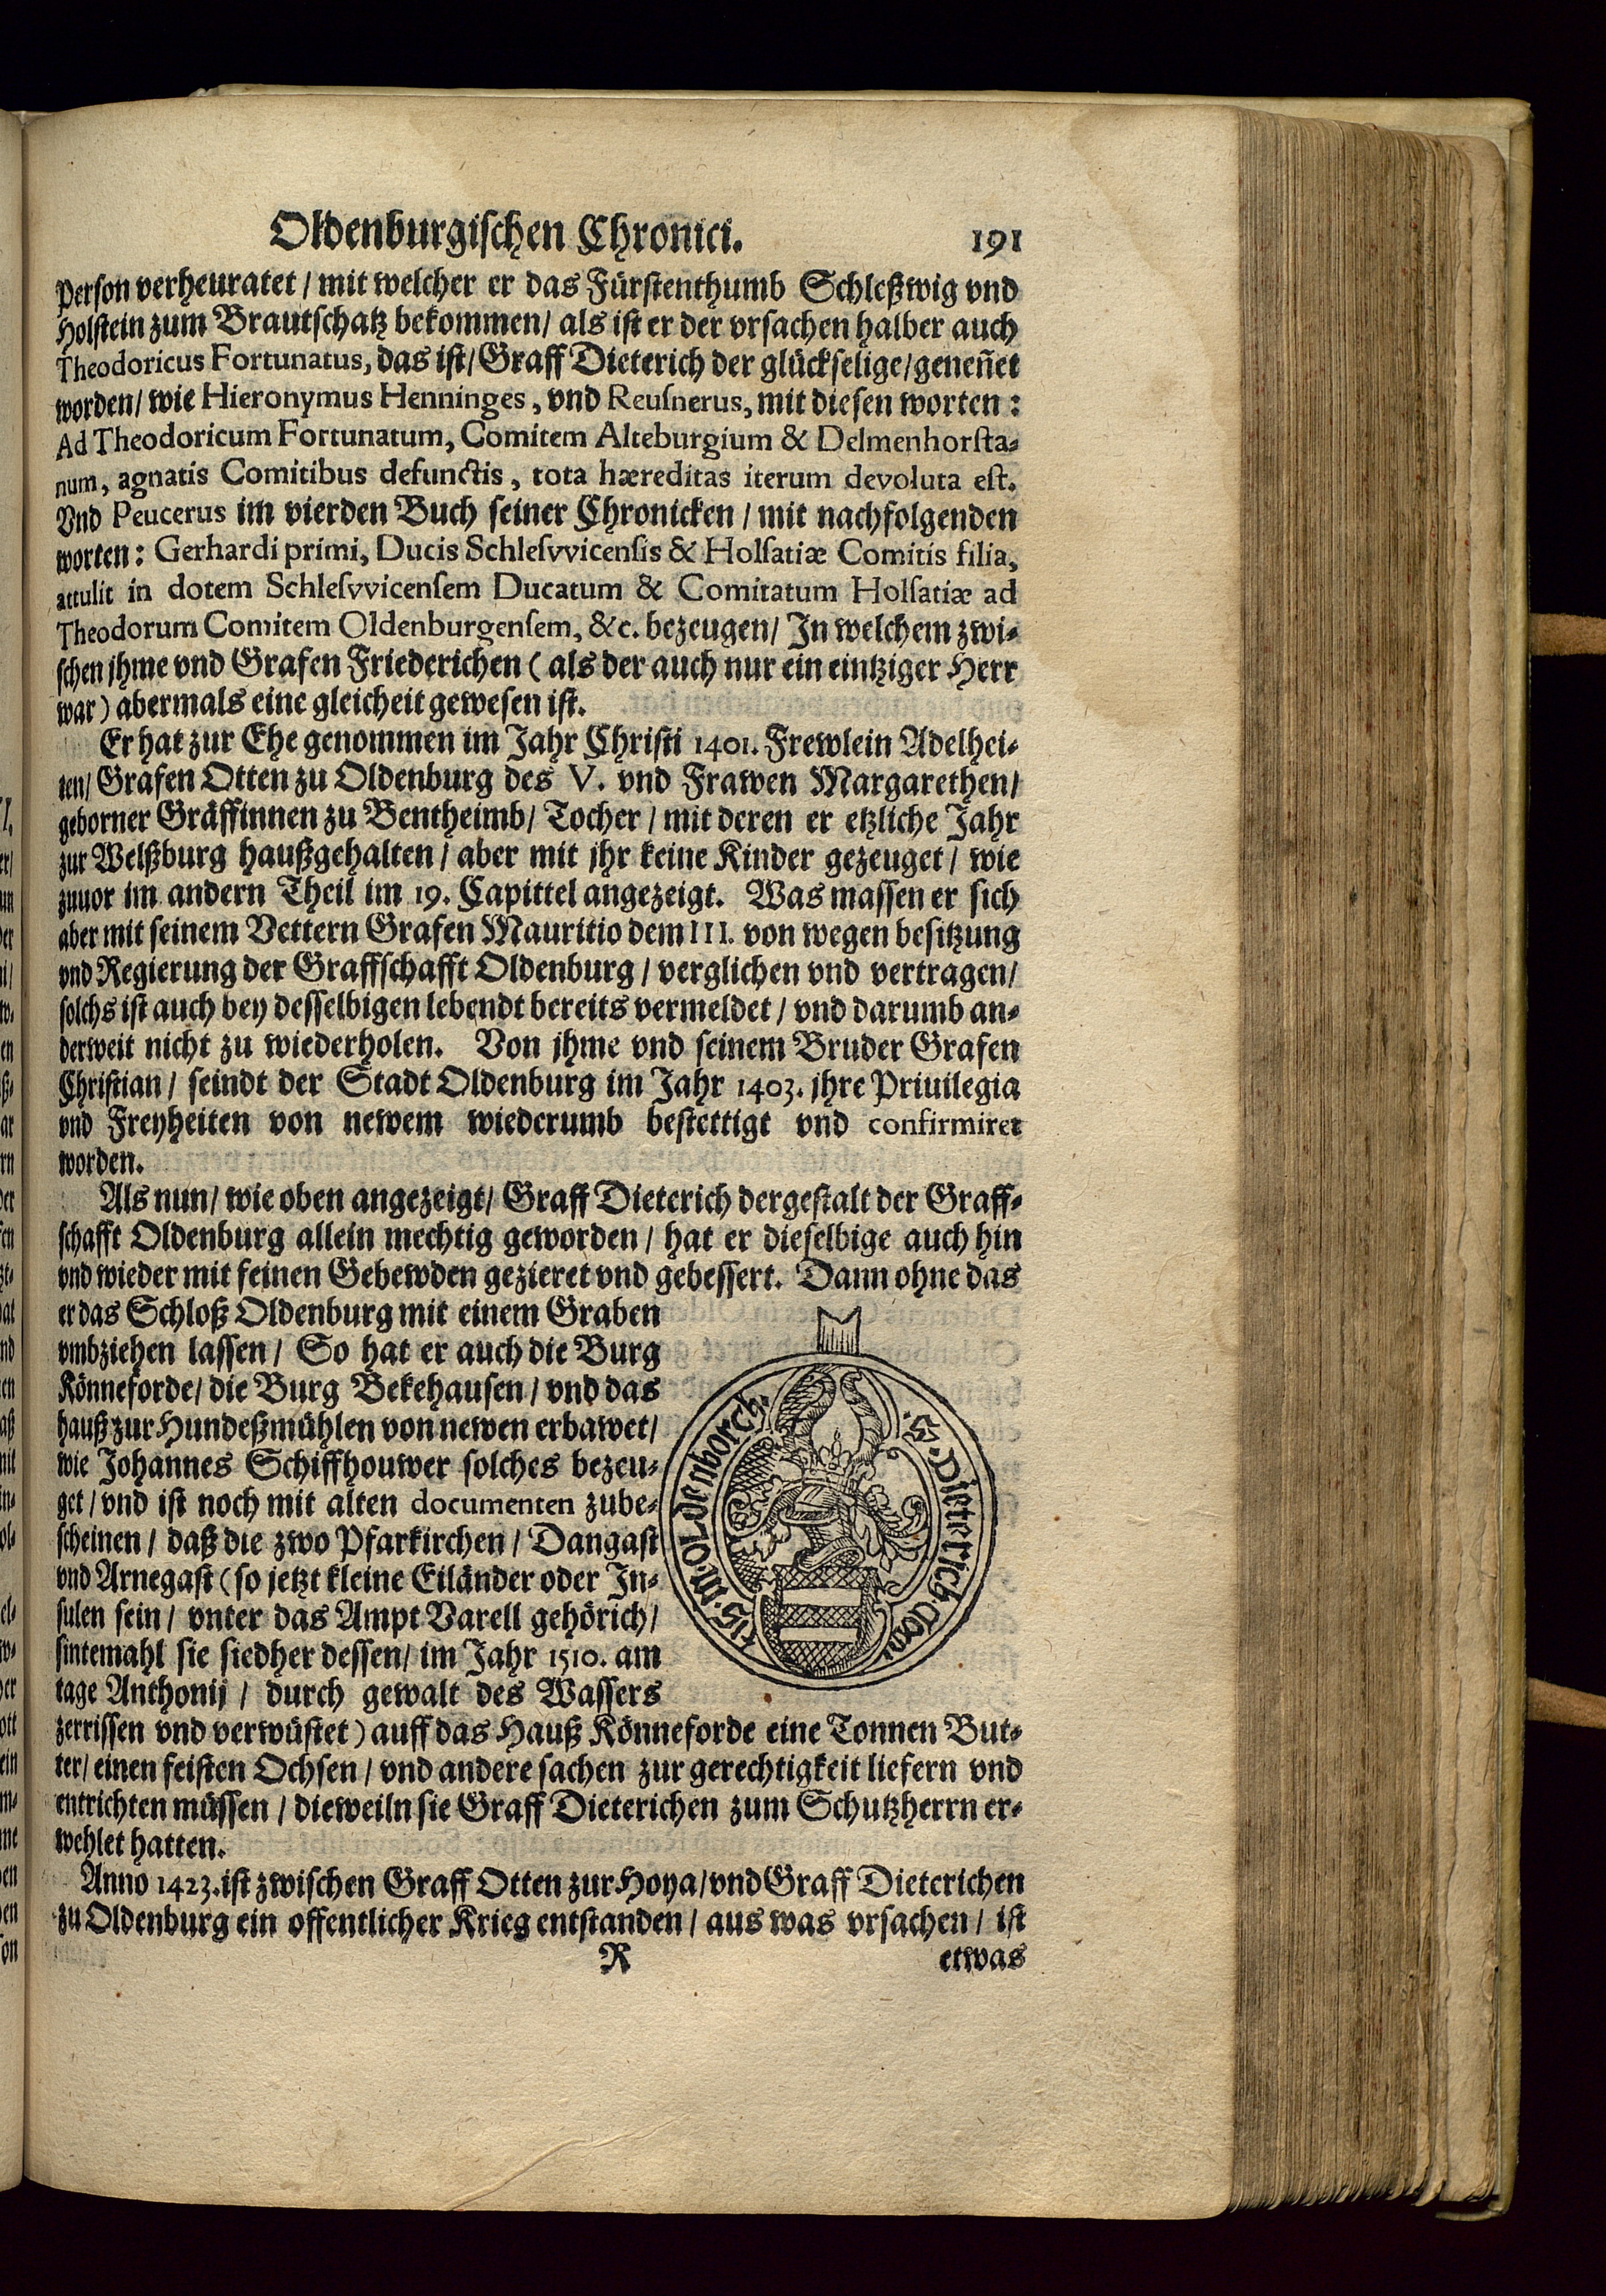 Oldenburgischen Chronici. 191
Person verheuratet / mit welcher er das Fürstenthumb Schleßwig vnd
Holstein zum Brautschatz bekommen / als ist er der vrsachen halber auch
Theodoricus Fortunatus, das ist / Graff Dieterich der glückselige / geneñet
worden / wie Hieronymus Henninges, vnd Reuſnerus, mit diesen worten:
Ad Theodoricum Fortunatum, Comitem Alteburgium & Delmenhorſta-
num, agnatis Comitibus defunctis, tota hæreditas iterum devoluta eſt.
Vnd Peucerus im vierden Buch seiner Chronicken / mit nachfolgenden
worten: Gerhardi primi, Ducis Schleſvvicenſis & Holſatiæ Comitis filia,
attulit in dotem Schleſvvicenſem Ducatum & Comitatum Holſatiæ ad
Theodorum Comitem Oldenburgenſem, &c. bezeugen / In welchem zwi-
schen jhme vnd Grafen Friederichen (als der auch nur ein eintziger Herr
war) abermals eine gleicheit gewesen ist.
Er hat zur Ehe genommen im Jahr Christi 1401. Frewlein Adelhei-
ten / Grafen Otten zu Oldenburg des V. vnd Frawen Margarethen /
geborner Gräffinnen zu Bentheimb / Tocher / mit deren er etzliche Jahr
zur Welßburg haußgehalten / aber mit jhr keine Kinder gezeuget / wie
zuuor im andern Theil im 19. Capittel angezeigt. Was massen er sich
aber mit seinem Vettern Grafen Mauritio dem III. von wegen besitzung
vnd Regierung der Graffschafft Oldenburg / verglichen vnd vertragen /
solchs ist auch bey desselbigen lebendt bereits vermeldet / vnd darumb an-
derweit nicht zu wiederholen. Von jhme vnd seinem Bruder Grafen
Christian / seindt der Stadt Oldenburg im Jahr 1403. jhre Priuilegia
vnd Freyheiten von newem wiederumb bestettigt vnd confirmiret
worden.
Als nun / wie oben angezeigt / Graff Dieterich dergestalt der Graff-
schafft Oldenburg allein mechtig geworden / hat er dieselbige auch hin
vnd wieder mit feinen Gebewden gezieret vnd gebessert. Dann ohne das
er das Schloß Oldenburg mit einem Graben
vmbziehen lassen / So hat er auch die Burg
Könneforde / die Burg Bekehausen / vnd das
hauß zur Hundeßmühlen von newen erbawet /
wie Johannes Schiffhouwer solches bezeu-
get / vnd ist noch mit alten documenten zube-
scheinen / daß die zwo Pfarkirchen / Dangast
vnd Arnegast (so jetzt kleine Eiländer oder In-
sulen sein / vnter das Ampt Varell gehörich /
sintemahl sie siedher dessen / im Jahr 1510. am
tage Anthonij / durch gewalt des Wassers
zerrissen vnd verwüstet) auff das Hauß Könneforde eine Tonnen But-
ter / einen feisten Ochsen / vnd andere sachen zur gerechtigkeit liefern vnd
entrichten müssen / dieweiln sie Graff Dieterichen zum Schutzherrn er-
wehlet hatten.
Anno 1423. ist zwischen Graff Otten zur Hoya / vnd Graff Dieterichen
zu Oldenburg ein offentlicher Krieg entstanden / aus was vrsachen / ist
R etwas
S. Dieterich. Comi
tis. in. Oldenborch.